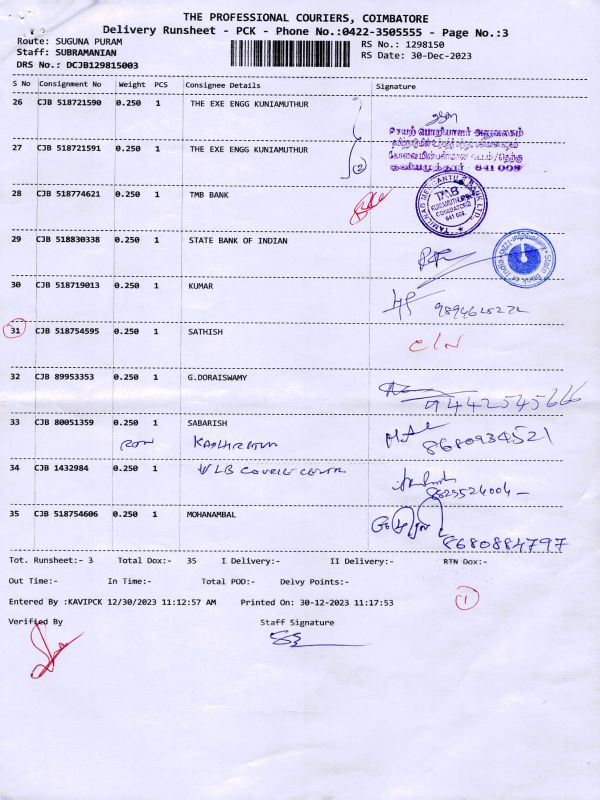 THE PROFESSIONAL COURIERS, COIMBATORE
Delivery Runsheet - PCK - Phone No.:0422-3505555 - Page No.:3
Route: SUGUNA PURAM RS No.: 1298150
Staff: SUBRAMANIAN RS Date: 30-Dec-2023
DRS No.: DCJB129815003
S No Consignment No Weight PCS Consignee Details Signature
26 CJB 518721590 0.250 1 THE EXE ENGG KUNIAMUTHUR
செயற் பொறியாளர் அலுவலகம்
27 CJB 518721591 0.250 1 THE EXE ENGG KUNIAMUTHUR
2
குனியமுத்தூர் 641 008
28 CJB 518774621 0.250 1 TMB BANK
TAMILNAD MERCANTILE BANK LTD.
TMB
COIMBATORE
29 CJB 518830338 0.250 1 STATE BANK OF INDIAN
State Bank of India
30 CJB 518719013 0.250 1 KUMAR
31 CJB 518754595 0.250 1 SATHISH
C/N
32 CJB 89953353 0.250 1 G.DORAISWAMY
9442545666
33 CJB 80051359 0.250 1 SABARISH
8680934521
34 CJB 1432984 0.250 1 VLB
35 CJB 518754606 0.250 1 MOHANAMBAL
8680884797
Tot. Runsheet:- 3 Total Dox:- 35 I Delivery:- II Delivery:- RTN Dox:-
Out Time:- In Time:- Total POD:- Delvy Points:-
Entered By :KAVIPCK 12/30/2023 11:12:57 AM Printed On: 30-12-2023 11:17:53
1
Verified By Staff Signature